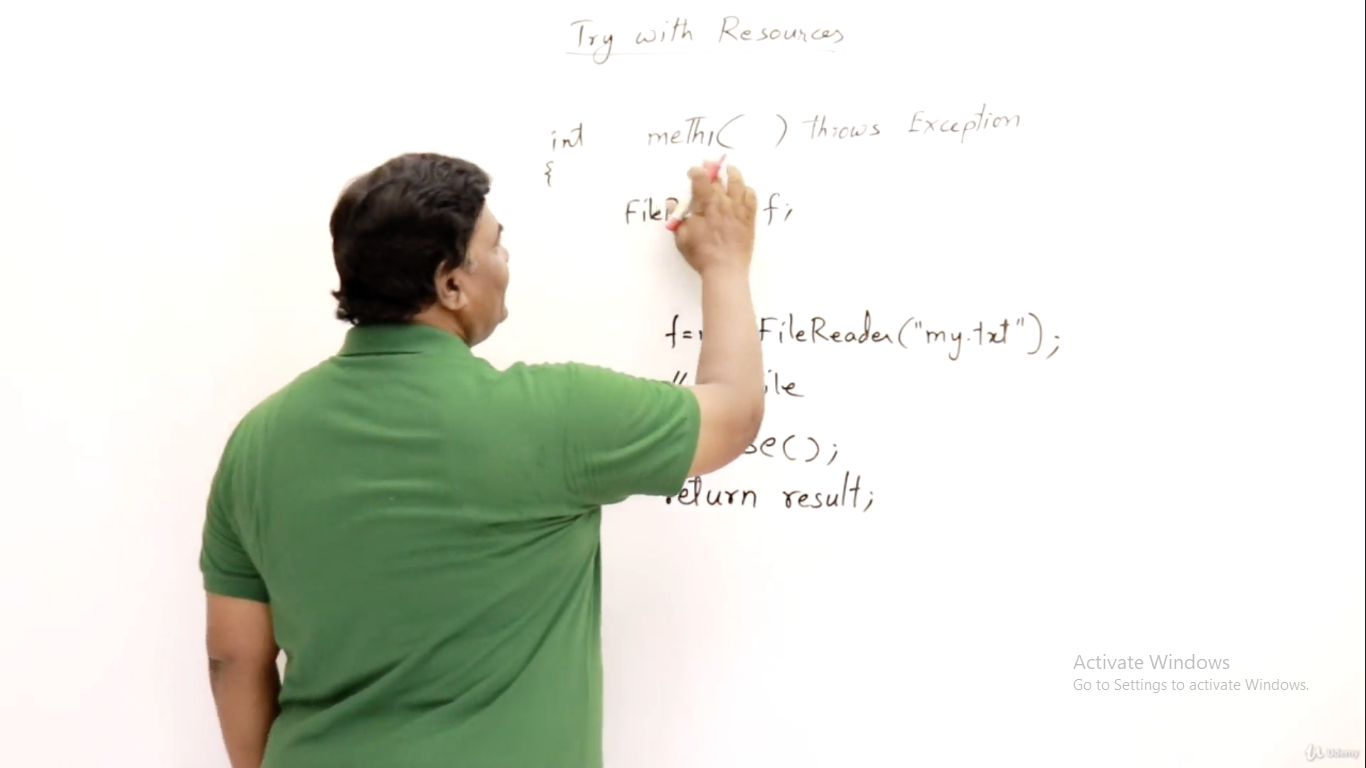 Try with Resources
int meth1( ) throws Exception
{
f;
FileReader("my.txt");
//
();
return result;
Activate Windows
Go to Settings to activate Windows.
Udemy